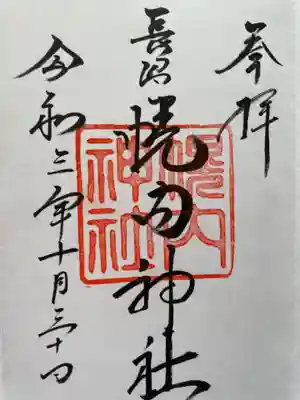 奉拝
長沼
幌内神社
幌内
神社
令和三年十月三十日